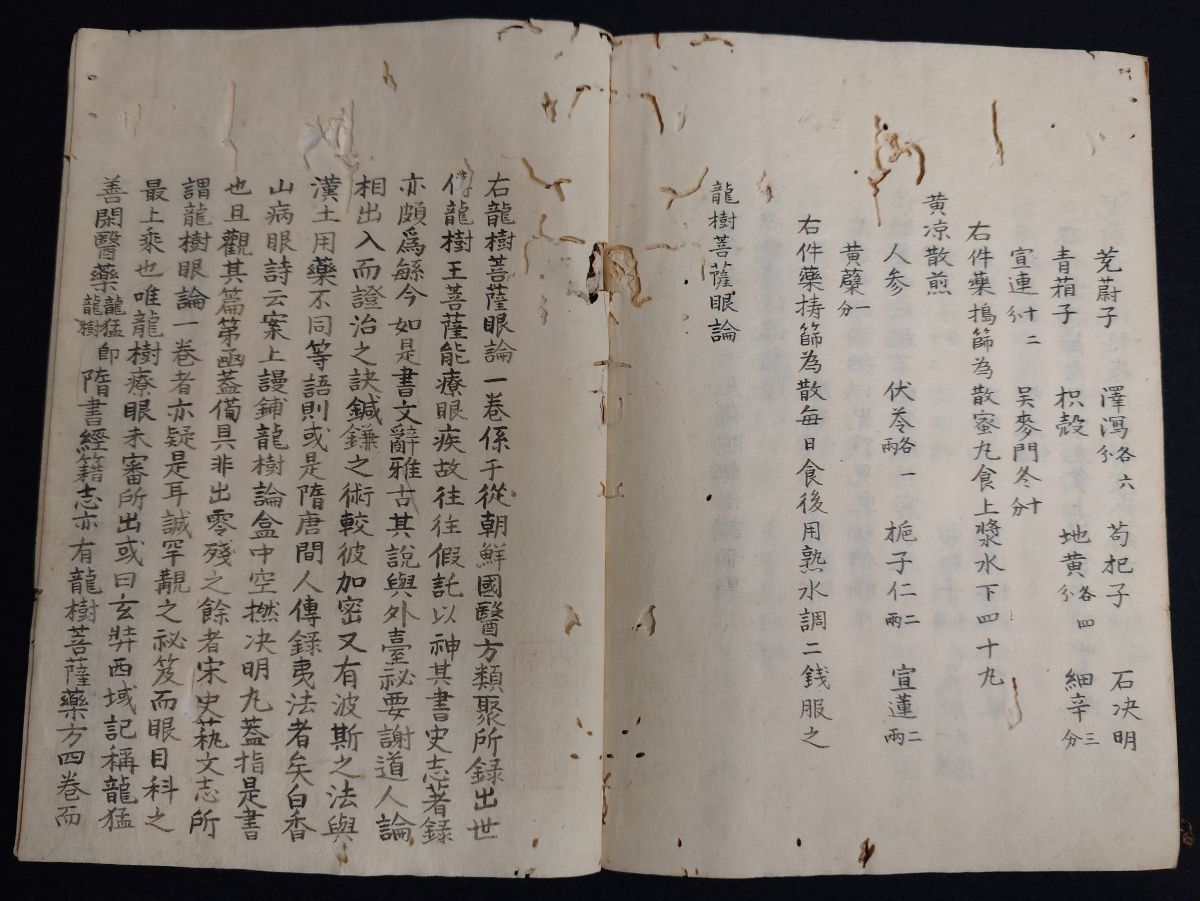 茺蔚子 澤瀉各六分 苟杞子 石决明
青葙子 枳殻 地黄各四分 細辛三分
宣連十二分 吴麥門冬十分
右件藥搗篩為散蜜丸食上漿水下四十丸
黄凉散煎
人参 伏苓各一兩 梔子仁二兩 宣蓮二兩
黄蘗一分
右件藥擣篩為散每日食後用熟水調二銭服之
龍樹菩薩眼論
右龍樹菩薩眼論一卷係于從朝鮮國醫方類聚所録出世
傳龍樹王菩薩能療眼疾故往往假託以神其書史志著録
亦頗爲緐今如是書文辭雅古其說與外臺祕要謝道人論
相出入而證治之訣鍼鎌之術較彼加密又有波斯之法與
漢土用藥不同等語則或是隋唐間人傳録夷法者矣白香
山病眼詩云案上謾鋪龍樹論盒中空撚决明丸蓋指是書
也且觀其篇第凾蓋備具非出零殘之餘者宋史蓺文志所
謂龍樹眼論一卷者亦疑是耳誠罕覯之祕笈而眼目科之
最上乘也唯龍樹療眼未審所出或曰玄弉西域記稱龍猛
善閑醫藥龍猛即龍樹隋書經籍志亦有龍樹菩薩藥方四卷而